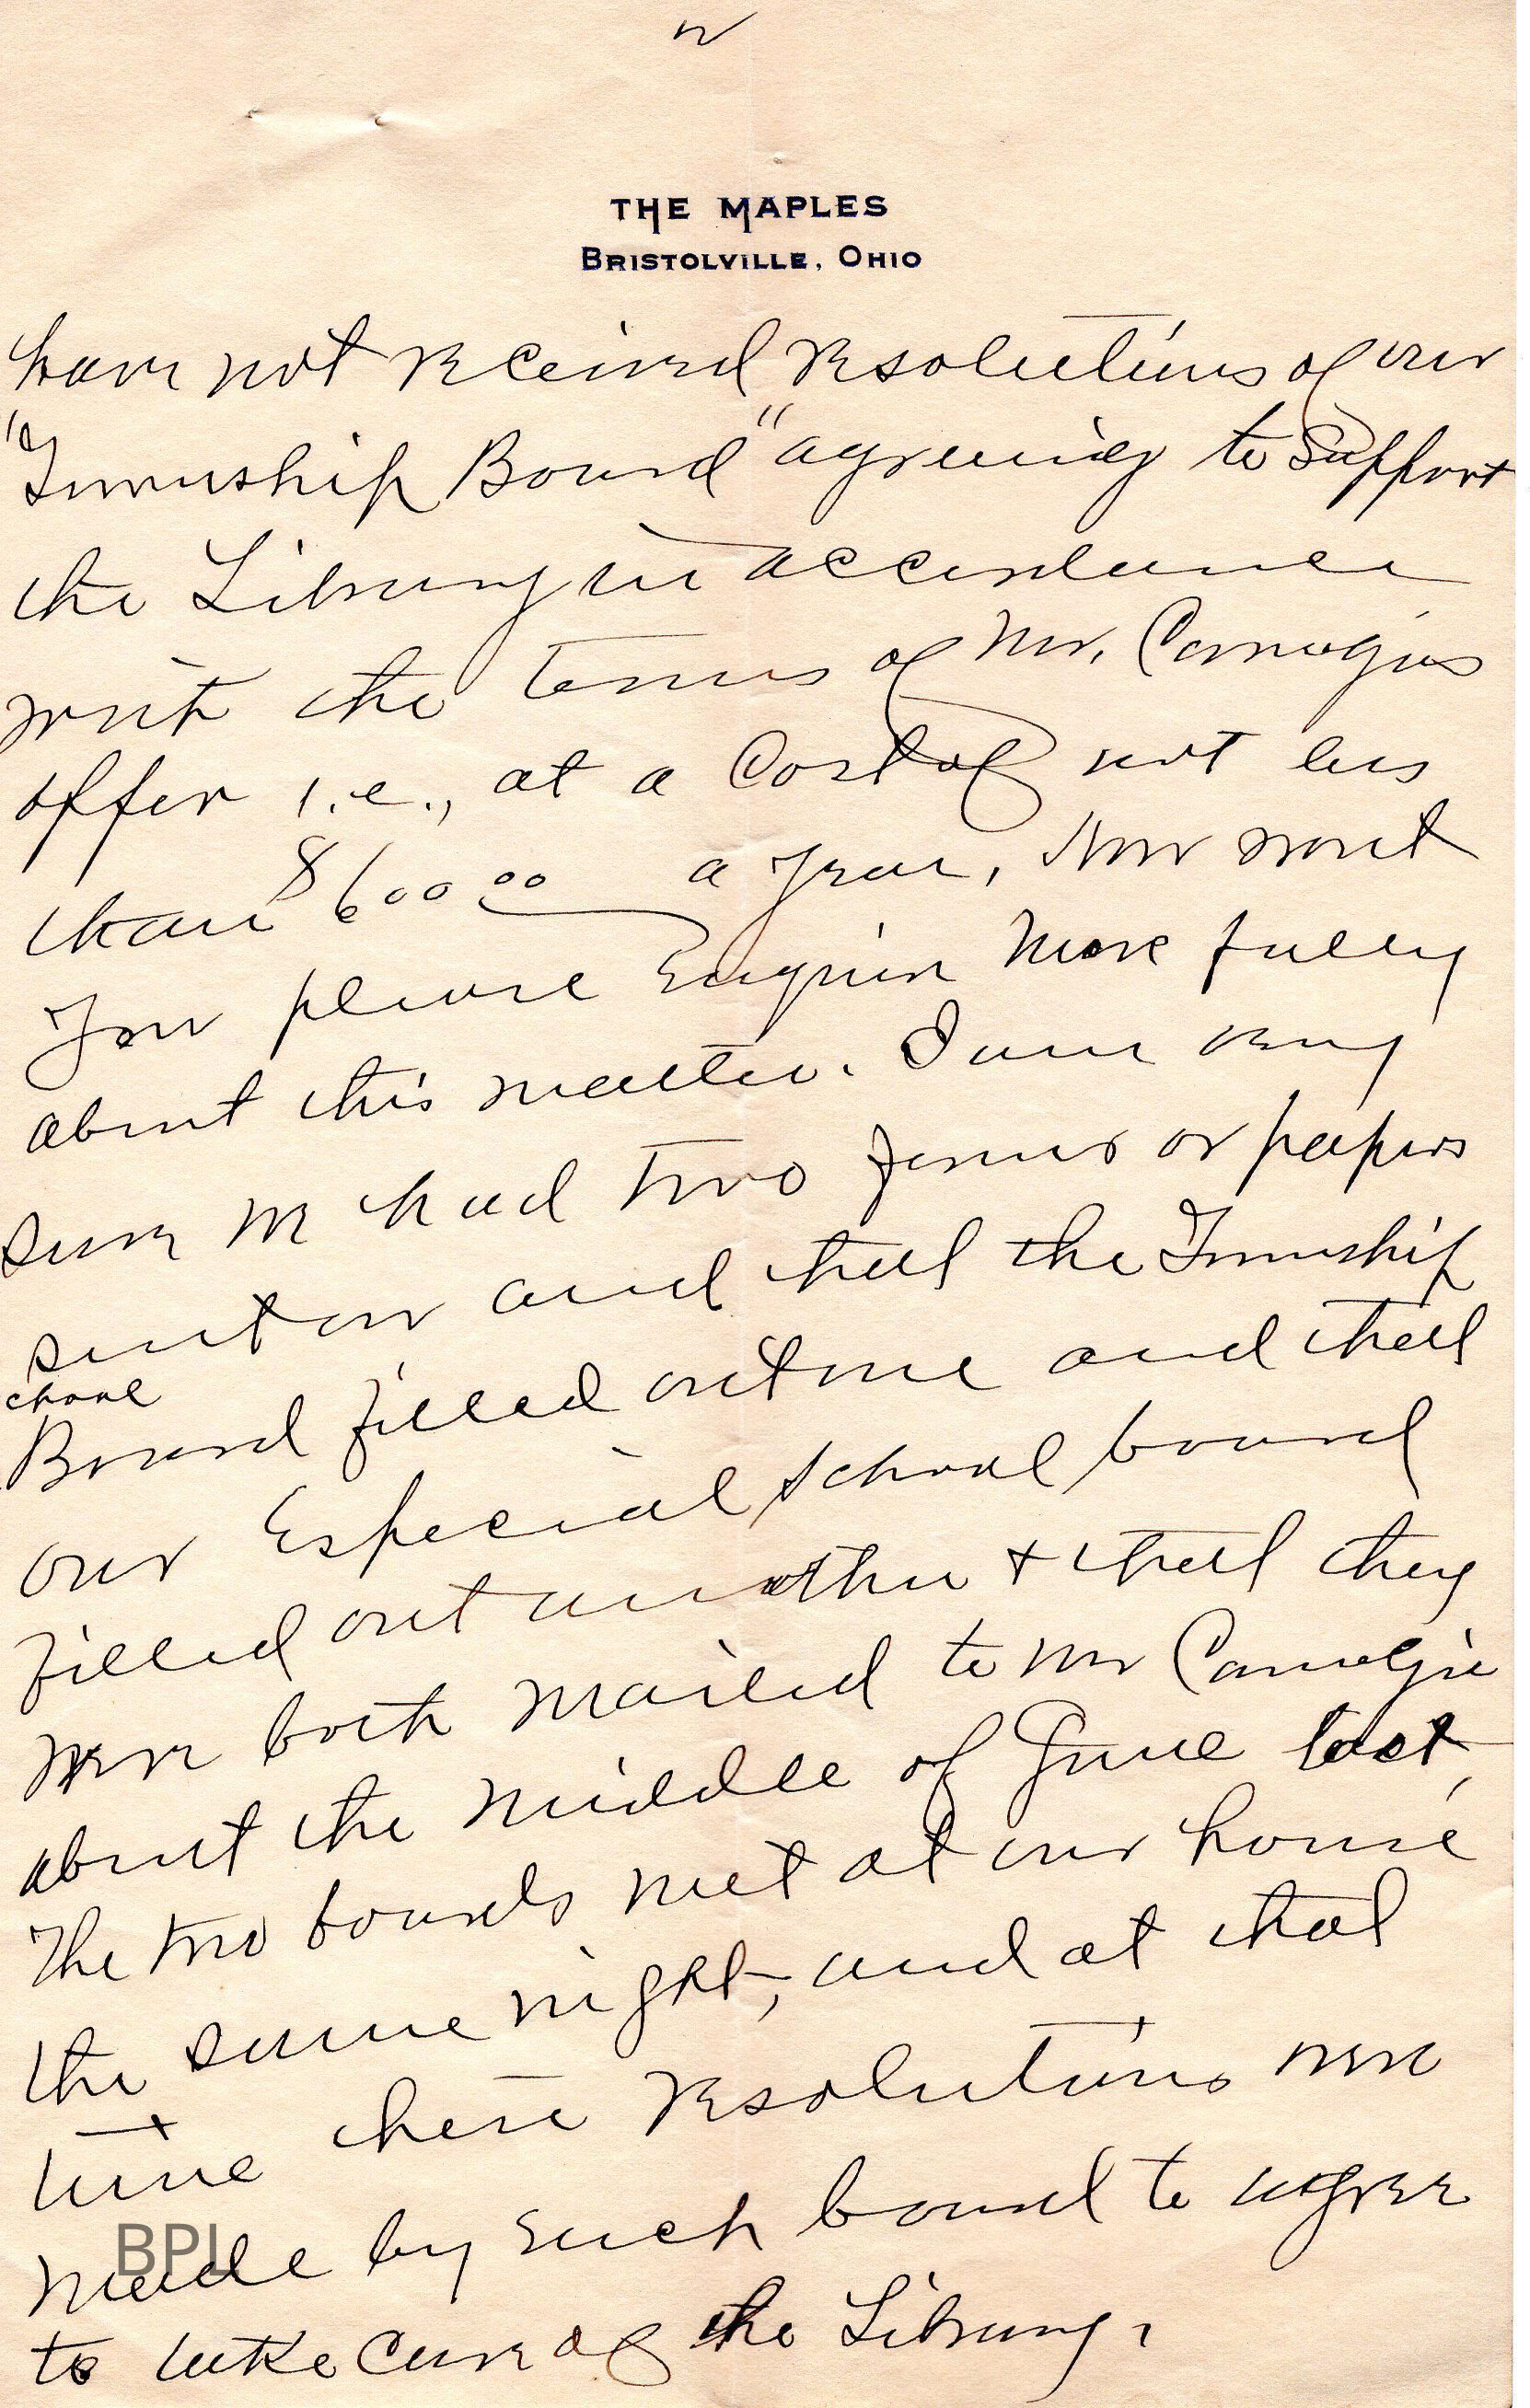 2
THE MAPLES
BRISTOLVILLE, OHIO
have not received resolutions of our
"Township Board" agreeing to support
the Library in accordance
with the terms of Mr. Carnegies
offer i.e., at a Cost of not less
than $600.00 a year, Now wont
you please enquire more fully
about this matter. I am very
sure we had two forms or papers
sent us and that the Township
chool
Board filled out one and that
our Especial school board
filled out another + that they
were both mailed to Mr Carnegie
about the middle of June last,
The two boards met at our house
the same night, and at that
time these resolutions were
made by such board to agree
to take care of the Library.
BPL